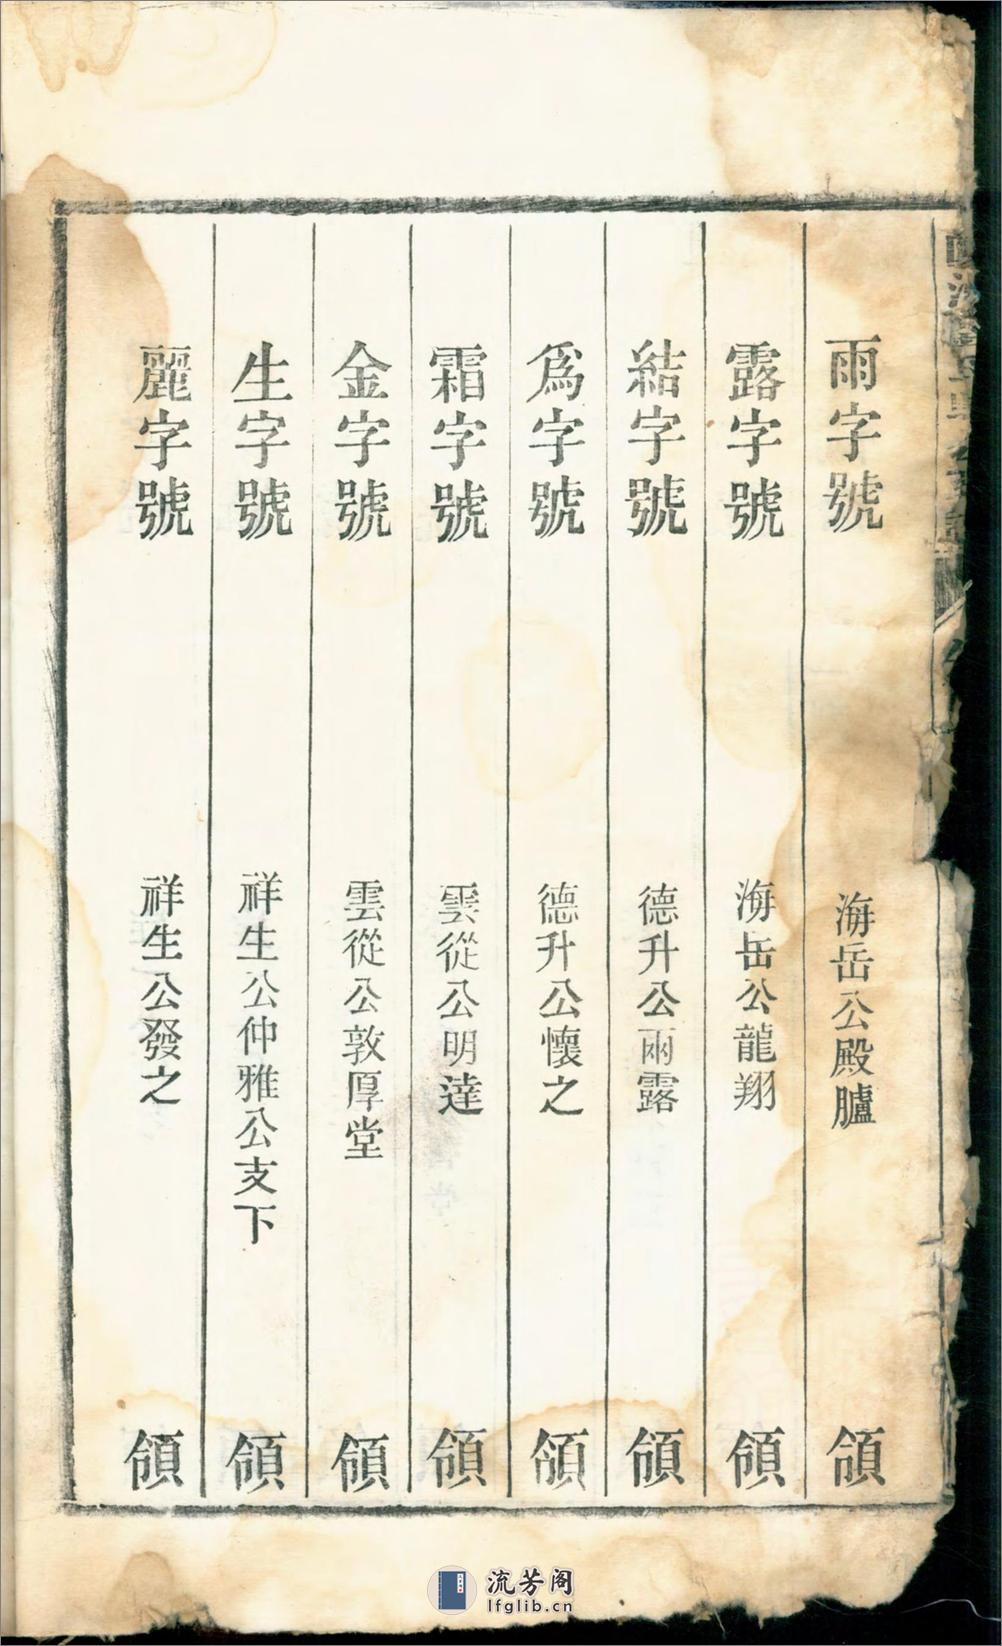 雨字號 海岳公殿臚 領
露字號 海岳公龍翔 領
結字號 德升公雨露 領
為字號 德升公懷之 領
霜字號 雲從公明達 領
金字號 雲從公敦厚堂 領
生字號 祥生公仲雅公支下 領
麗字號 祥生公發之 領
流芳阁
lfglib.cn